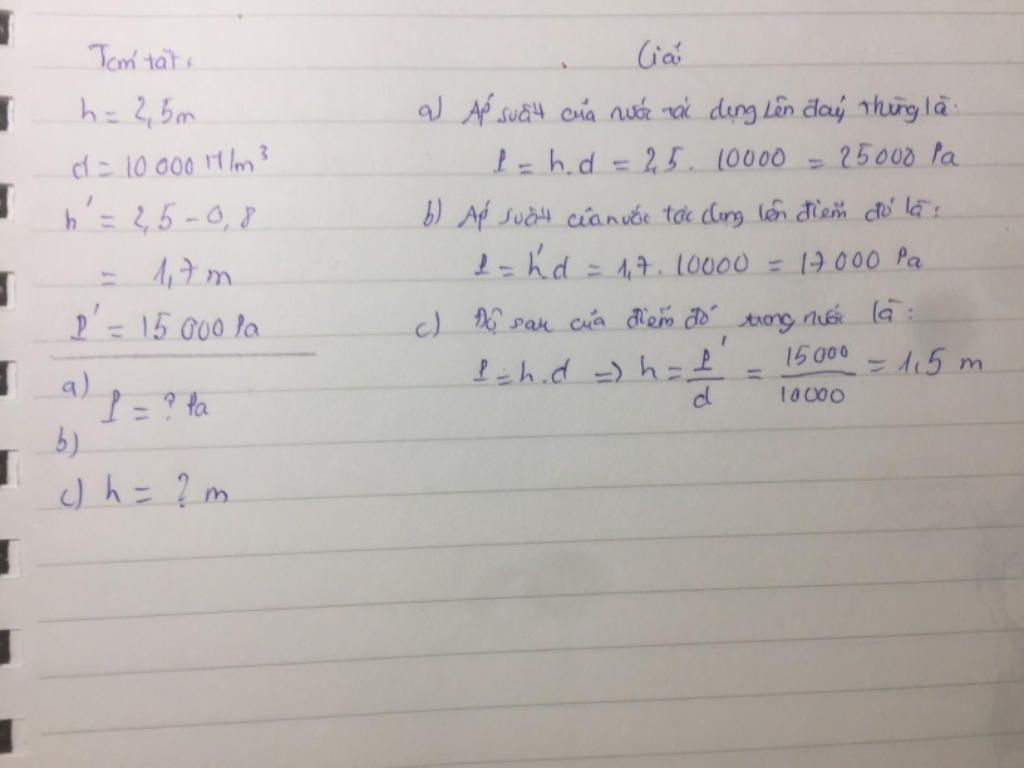 Tóm tắt:
h = 2,5m
d = 10 000 N/m³
h' = 2,5 - 0,8
= 1,7 m
P' = 15 000 Pa
a) P = ? Pa
b)
c) h = ? m
Giải
a) Áp suất của nước tác dụng lên đáy thùng là:
P = h.d = 2,5. 10000 = 25000 Pa
b) Áp suất của nước tác dụng lên điểm đó là:
P = h'd = 1,7. 10000 = 17 000 Pa
c) Độ sau của điểm đó trong nước là:
P = h.d => h = P'/d = 15000/10000 = 1,5 m